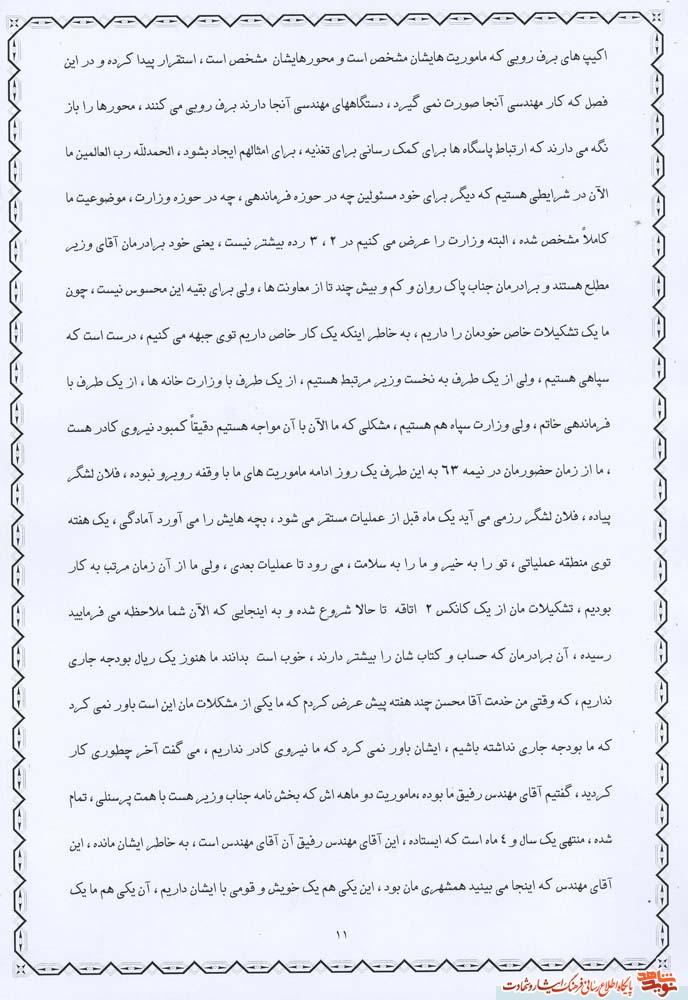 اکیپ های برف روبی که ماموریت هایشان مشخص است و محورهایشان مشخص است ، استقرار پیدا کرده و در این
فصل که کار مهندسی آنجا صورت نمی گیرد ، دستگاههای مهندسی آنجا دارند برف روبی می کنند ، محورها را باز
نگه می دارند که ارتباط پاسگاه ها برای کمک رسانی برای تغذیه ، برای امثالهم ایجاد بشود ، الحمدلله رب العالمین ما
الآن در شرایطی هستیم که دیگر برای خود مسئولین چه در حوزه فرماندهی ، چه در حوزه وزارت ، موضوعیت ما
کاملاً مشخص شده ، البته وزارت را عرض می کنیم در ۲ ، ۳ رده بیشتر نیست ، یعنی خود برادرمان آقای وزیر
مطلع هستند و برادرمان جناب پاک روان و کم و بیش چند تا از معاونت ها ، ولی برای بقیه این محسوس نیست ، چون
ما یک تشکیلات خاص خودمان را داریم ، به خاطر اینکه یک کار خاص داریم توی جبهه می کنیم ، درست است که
سپاهی هستیم ، ولی از یک طرف به نخست وزیر مرتبط هستیم ، از یک طرف با وزارت خانه ها ، از یک طرف با
فرماندهی خاتم ، ولی وزارت سپاه هم هستیم ، مشکلی که ما الآن با آن مواجه هستیم دقیقاً کمبود نیروی کادر هست
، ما از زمان حضورمان در نیمه ۶۳ به این طرف یک روز ادامه ماموریت های ما با وقفه روبرو نبوده ، فلان لشگر
پیاده ، فلان لشگر رزمی می آید یک ماه قبل از عملیات مستقر می شود ، بچه هایش را می آورد آمادگی ، یک هفته
توی منطقه عملیاتی ، تو را به خیر و ما را به سلامت ، می رود تا عملیات بعدی ، ولی ما از آن زمان مرتب به کار
بودیم ، تشکیلات مان از یک کانکس ۲ اتاقه تا حالا شروع شده و به اینجایی که الآن شما ملاحظه می فرمایید
رسیده ، آن برادرمان که حساب و کتاب شان را بیشتر دارند ، خوب است بدانند ما هنوز یک ریال بودجه جاری
نداریم ، که وقتی من خدمت آقا محسن چند هفته پیش عرض کردم که ما یکی از مشکلات مان این است باور نمی کرد
که ما بودجه جاری نداشته باشیم ، ایشان باور نمی کرد که ما نیروی کادر نداریم ، می گفت آخر چطوری کار
کردید ، گفتیم آقای مهندس رفیق ما بوده ،ماموریت دو ماهه اش که بخش نامه جناب وزیر هست با همت پرسنلی ، تمام
شده ، منتهی یک سال و ٤ ماه است که ایستاده ، این آقای مهندس رفیق آن آقای مهندس است ، به خاطر ایشان مانده ، این
آقای مهندس که اینجا می بینید همشهری مان بود ، این یکی هم یک خویش و قومی با ایشان داریم ، آن یکی هم ما یک
۱۱
نوید شاهد
پایگاه اطلاع رسانی فرهنگ ایثار و شهادت